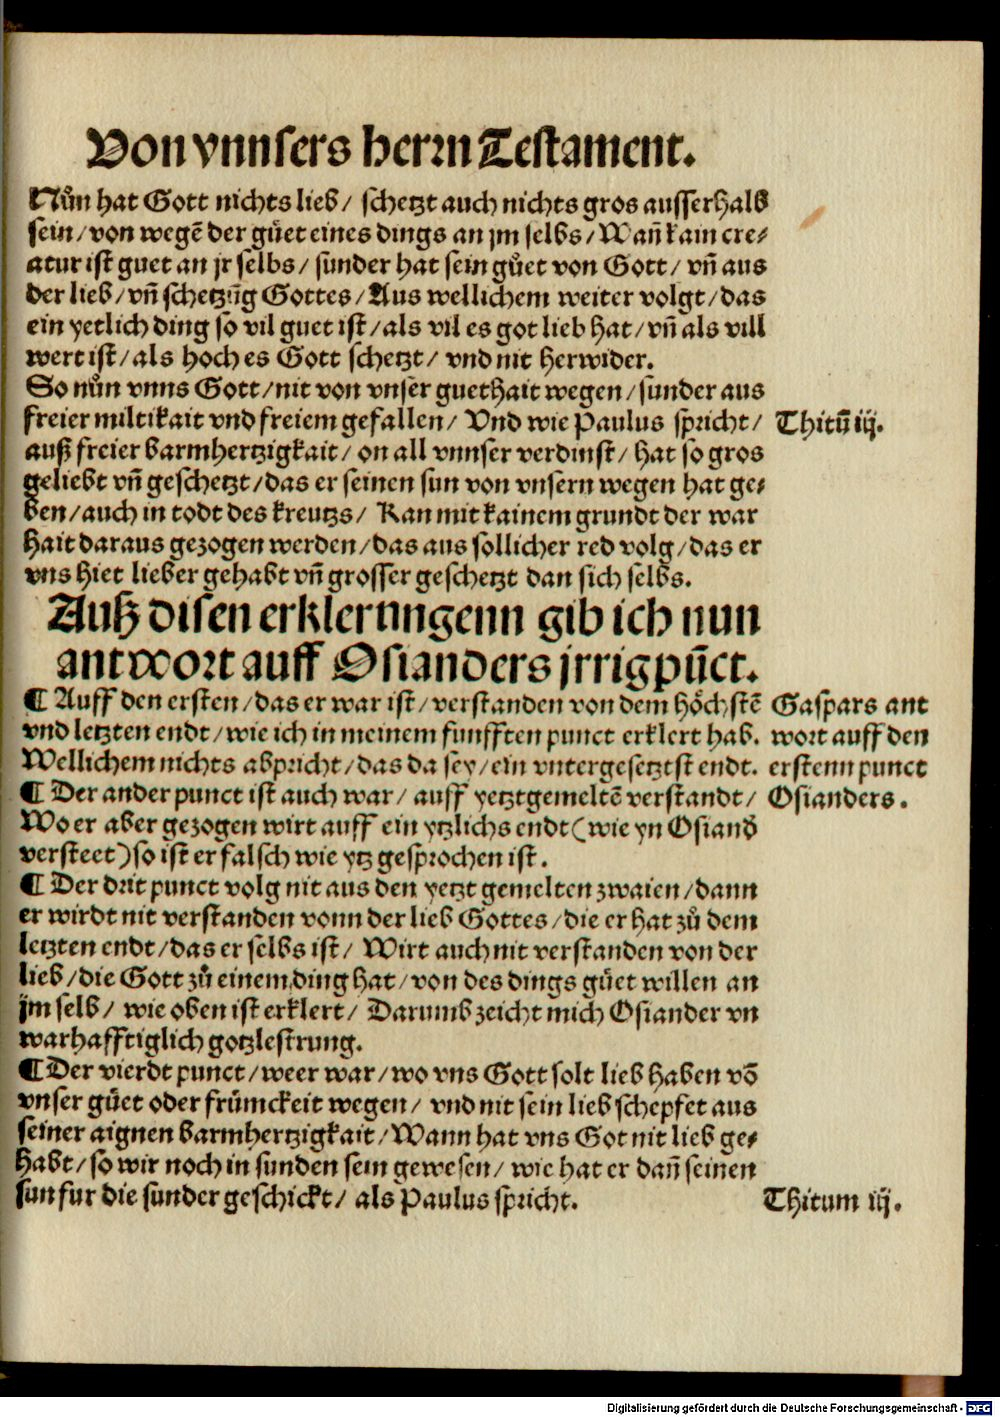 Von vnnsers herrn Testament.
Nůn hat Gott nichts lieb/ schetzt auch nichts gros ausserhalb
sein/von wegē der gůet eines dings an jm selbs/Wañ kain cre⸗
atur ist guet an jr selbs/ sunder hat sein gůet von Gott/ vñ aus
der lieb/vñ schetzūg Gottes/Aus wellichem weiter volgt/das
ein yetlich ding so vil guet ist/als vil es got lieb hat/vñ als vill
wert ist/als hoch es Gott schetzt/ vnd nit herwider.
So nůn vnns Gott/nit von vnser guethait wegen/sunder aus
freier miltikait vnd freiem gefallen/ Vnd wie Paulus spricht/
Thitū iij.
auß freier barmhertzigkait/ on all vnnser verdinst/ hat so gros
geliebt vñ geschetzt/das er seinen sun von vnsern wegen hat ge⸗
ben/auch in todt des kreutzs/ Kan mit kainem grundt der war
hait daraus gezogen werden/das aus sollicher red volg/das er
vns hiet lieber gehabt vñ grosser geschetzt dan sich selbs.
Auß disen erklerunngenn gib ich nun
antwort auff Osianders jrrig pūct.
¶ Auff den ersten/das er war ist/verstanden von dem höchstē
vnd letzten endt/wie ich in meinem funfften punct erklert hab.
Wellichem nichts abpricht/das da sey/ein vntergesetztst endt.
¶ Der ander punct ist auch war/ auff yetztgemeltē verstandt/
Gaspars ant
wort auff den
erstenn punct
Osianders.
Wo er aber gezogen wirt auff ein ytzlichs endt(wie yn Osiand̛
versteet)so ist er falsch wie ytz gesprochen ist.
¶ Der drit punct volg nit aus den yetzt gemelten zwaien/dann
er wirdt nit verstanden vonn der lieb Gottes/die er hat zů dem
letzten endt/das er selbs ist/ Wirt auch nit verstanden von der
lieb/die Gott zů einem ding hat/von des dings gůet willen an
jm selb/ wie oben ist erklert/ Darumb zeicht mich Osiander vn
warhafftiglich gotzlestrung.
¶ Der vierdt punct/weer war/wo vns Gott solt lieb haben vō
vnser gůet oder frümckeit wegen/ vnd nit sein lieb schepfet aus
seiner aignen barmhertzigkait/Wann hat vns Got nit lieb ge⸗
habt/so wir noch in sunden sein gewesen/ wie hat er dañ seinen
sun fur die sunder geschickt/ als Paulus spricht.
Thitum iij.
Digitalisierung gefördert durch die Deutsche Forschungsgemeinschaft - DFG